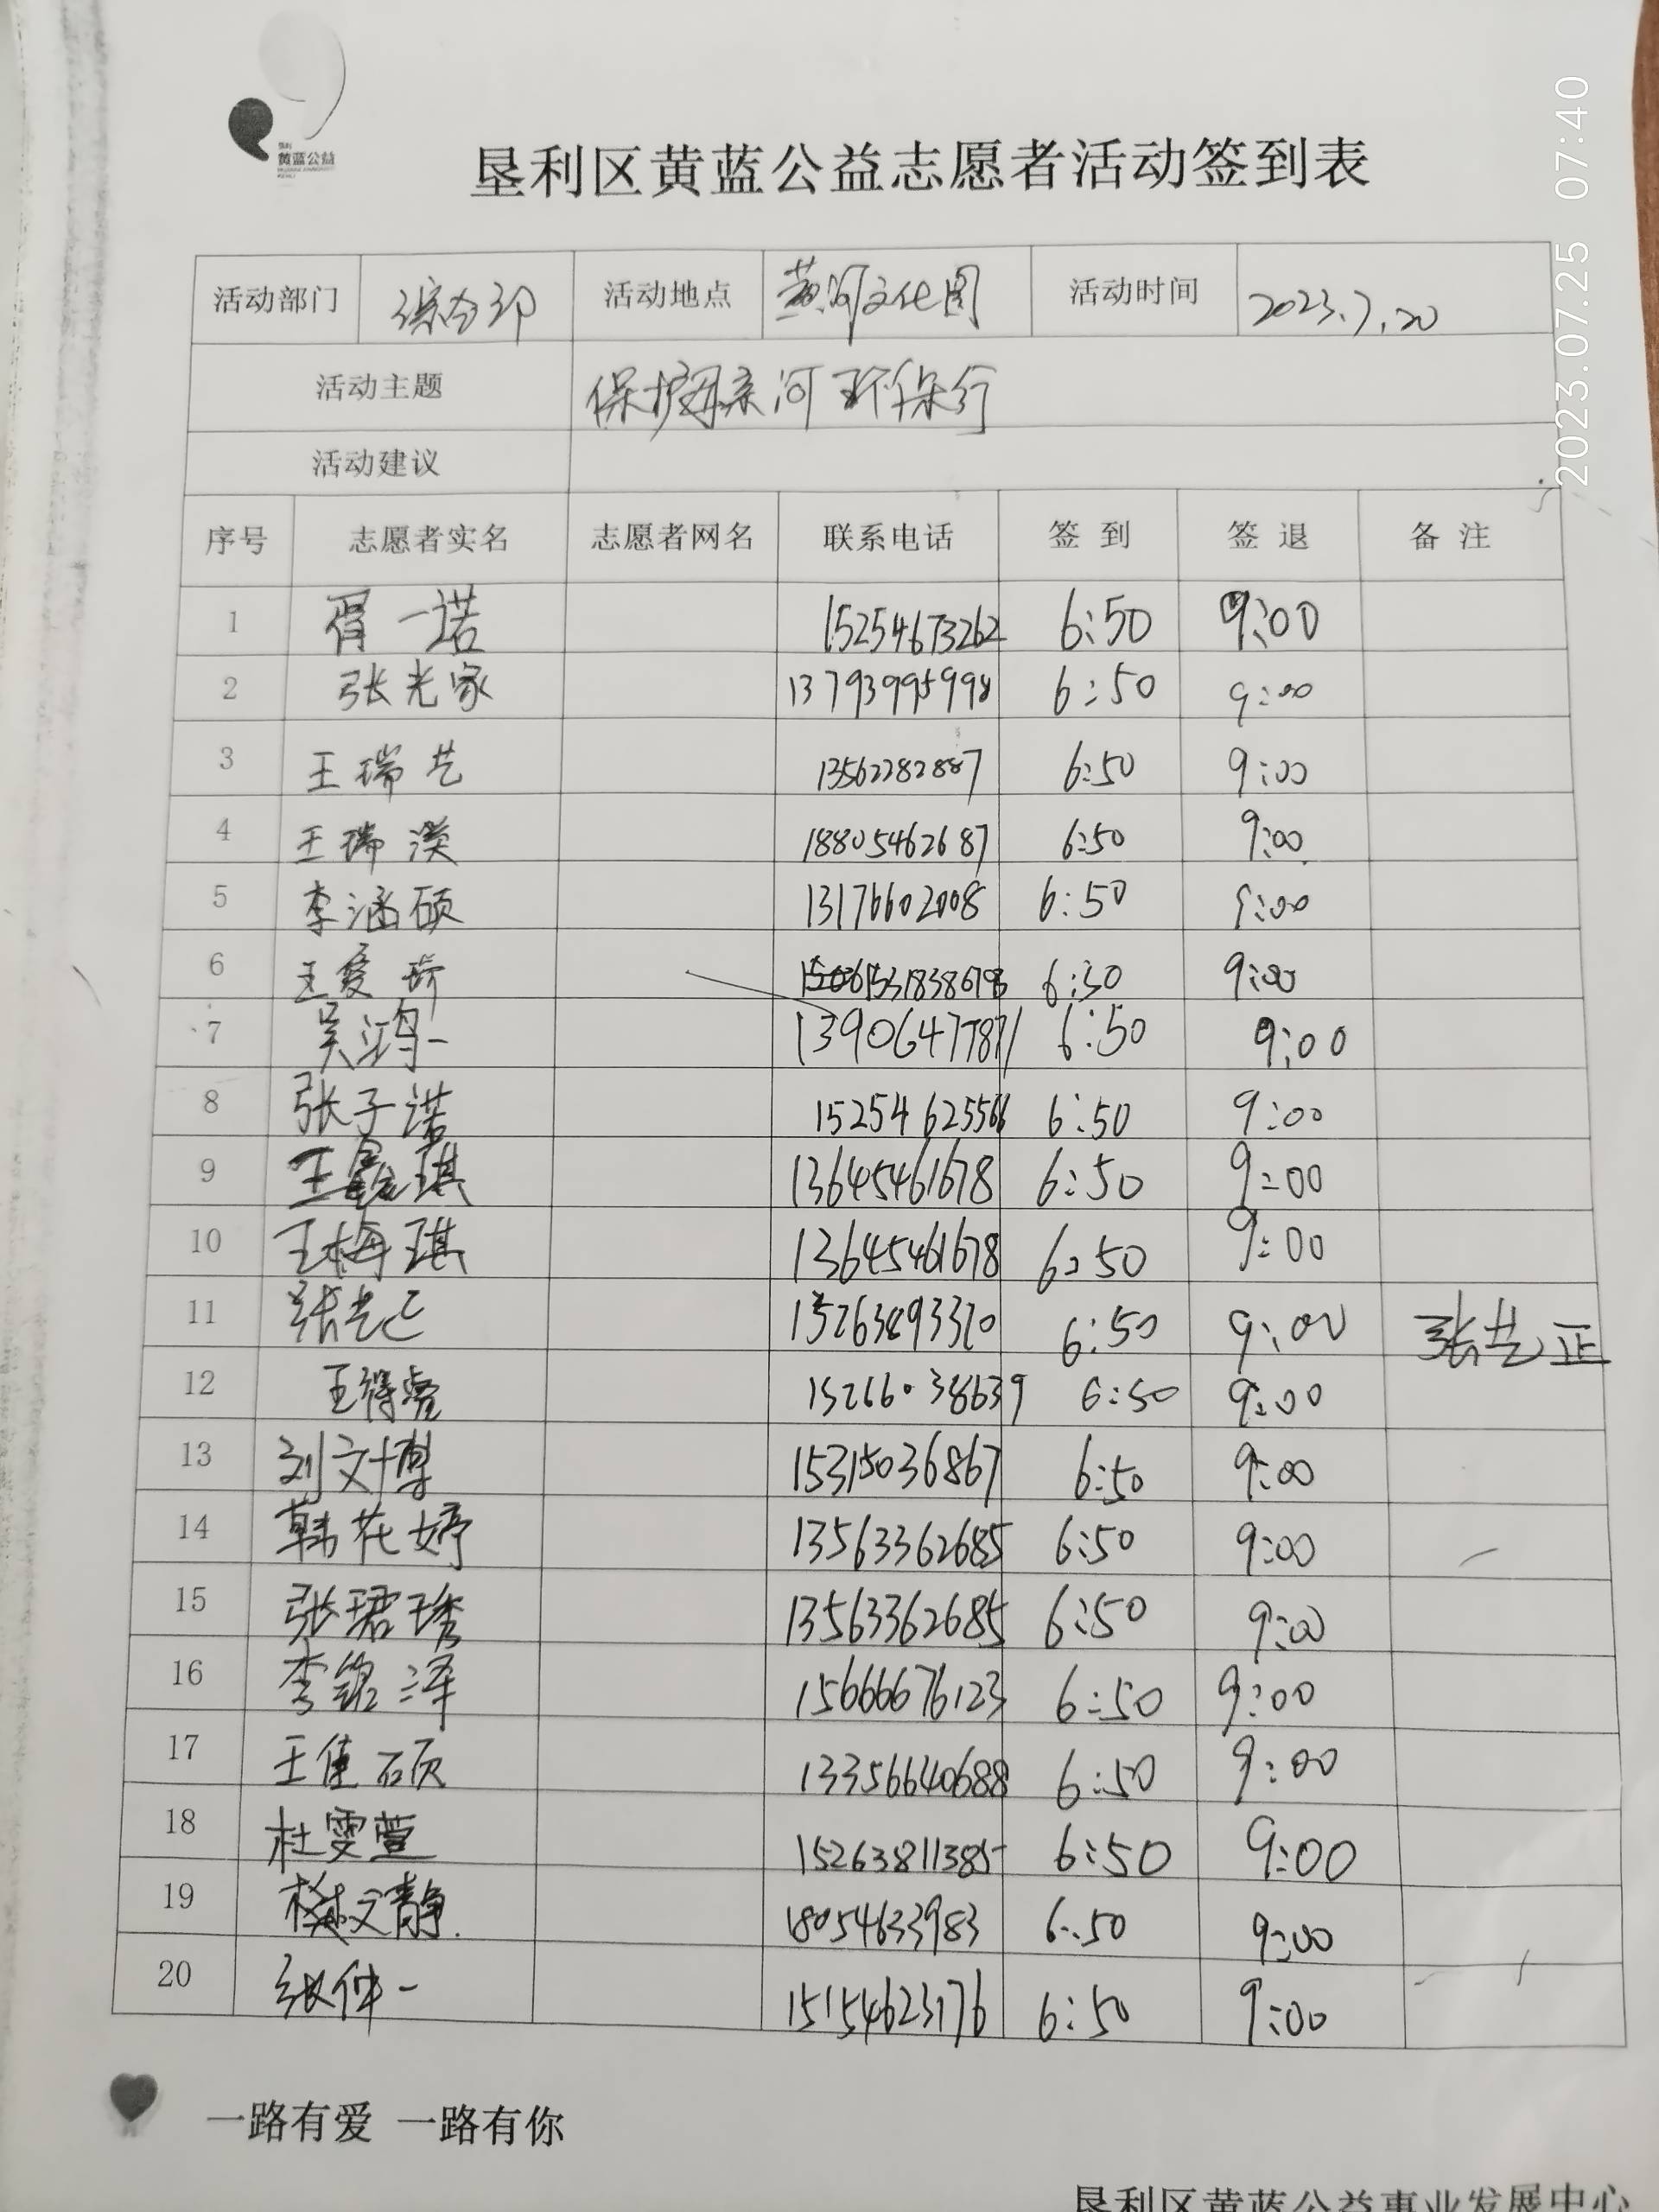 黄蓝公益
垦利区黄蓝公益志愿者活动签到表
2023.07.25 07:40
活动部门 综合部 活动地点 黄河文化园 活动时间 2023.7.20
活动主题 保护母亲河环保行
活动建议
序号 志愿者实名 志愿者网名 联系电话 签到 签退 备注
1 胥一诺 15254673262 6:50 9:00
2 张光家 13793995998 6:50 9:00
3 王瑞艺 13562282887 6:50 9:00
4 王瑞漠 18805462687 6:50 9:00
5 李涵硕 13176602008 6:50 9:00
6 王爱琦 15318386798 6:50 9:00
7 吴鸿一 13906477871 6:50 9:00
8 张子诺 15254625566 6:50 9:00
9 王鑫琪 13645461678 6:50 9:00
10 王梅琪 13645461678 6:50 9:00
11 张艺正 15263893310 6:50 9:00 张艺正
12 王得睿 15266038639 6:50 9:00
13 刘文博 15315036867 6:50 9:00
14 韩花婷 13563362685 6:50 9:00
15 张珺琇 13563362685 6:50 9:00
16 李铭泽 15666676123 6:50 9:00
17 王佳硕 13356640688 6:50 9:00
18 杜雯萱 15263811385 6:50 9:00
19 樊文静 18054633983 6:50 9:00
20 张仲一 15154623176 6:50 9:00
一路有爱 一路有你
垦利区黄蓝公益事业发展中心